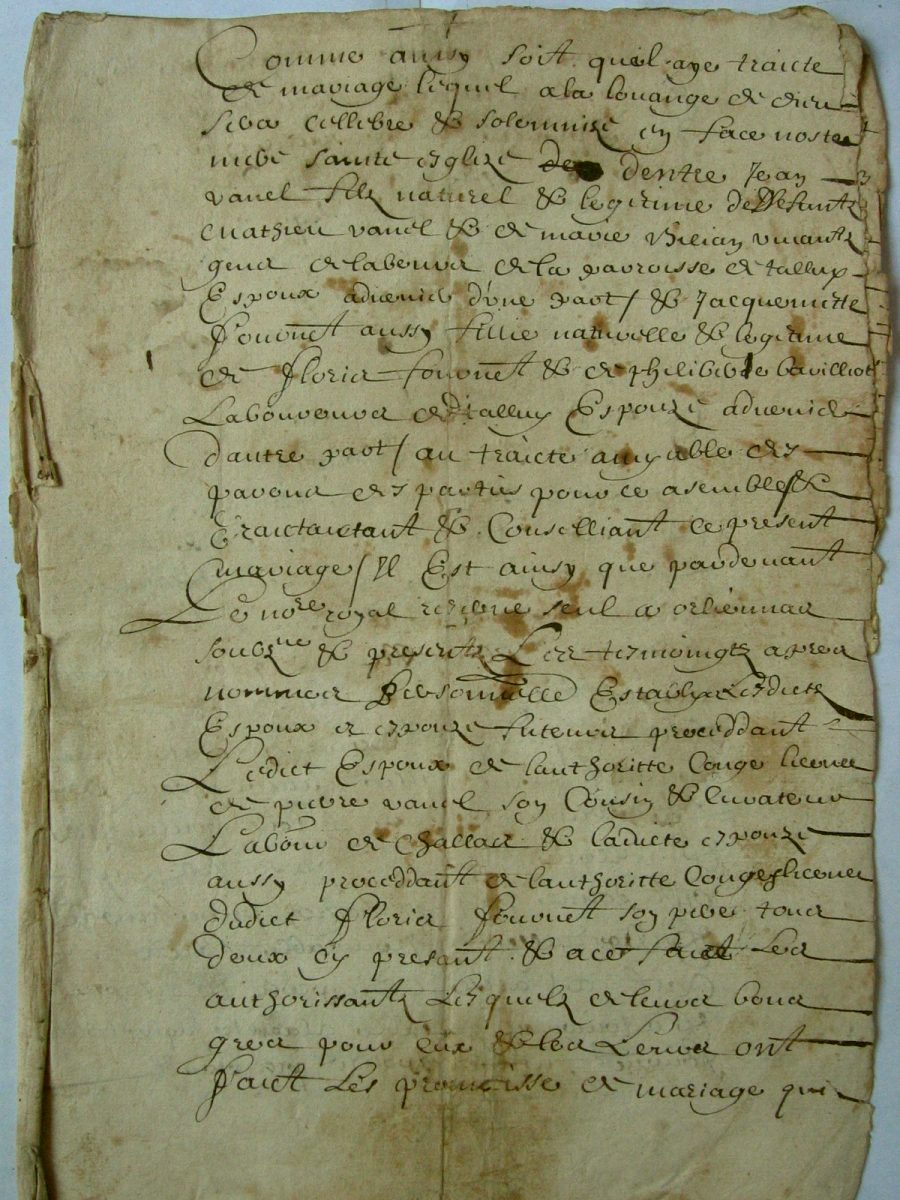 Comme ainsy soit quil aye traicte
de mariage lequel a la louange de dieu
sera cellebre & solemnize en face nostre
mere sainte esglize dentre Jean
vanel filz naturel & legitime de deffuntz
Mathieu vanel & de marie vivantz
gens de labeur de la parroisse de tallux
Espoux advenir d'une part / & Jacquemette
fournet aussy fillie naturelle & legitime
de floris fournet & de philiberte bavilliot
Laboureurs de tallux Espouze advenir
d'autre part / au traicte amyable des
parens des parties pour ce asembles &
traictantant & Conseilliant ce present
mariage / Il Est ainsy que pardevant
Le nore royal reserve seul a
soubzne & presentz Les tesmoingtz apres
nommes personnelle Establys Lesdictz
Espoux et espouze futeurs proceddant
Ledict Espoux de lauthoritte Conge licence
de pierre vanel son Cousin & Curateur
Labour de Challes & ladicte espouze
aussy proceddant de lauthoritte Conge & licence
dudict floris fournet son pere tous
deux cy presant & a ce faict Les
authorissantz Lesquelz de leurs bons
gres pour Eux & les Leurs ont
faict Les promesse de mariage qui